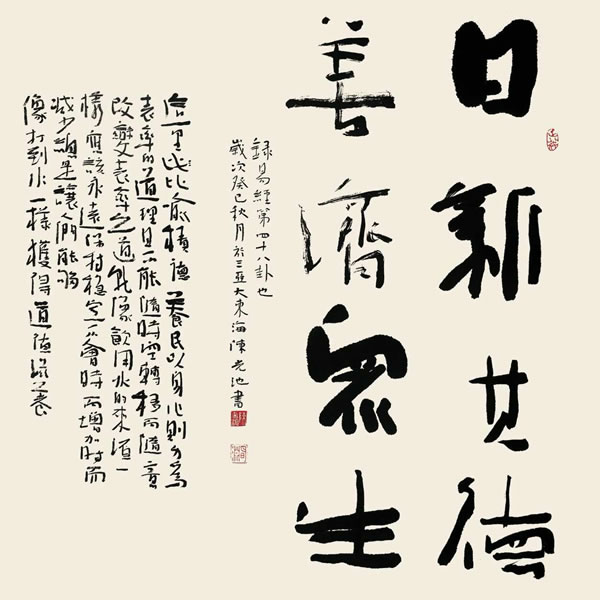 日新其德
善濟眾生
錄易經第四十八卦也
歲次癸巳秋月於三亞大東海陳光池書
這里比喻積德養民以身則為
表率的道理且不能隨時空轉移而隨意
改變表率之道就像飲用水的來源一
樣應該永遠保持穩定不會時而增加時而
減少總是讓人們能夠
像打到水一樣獲得道德滋養